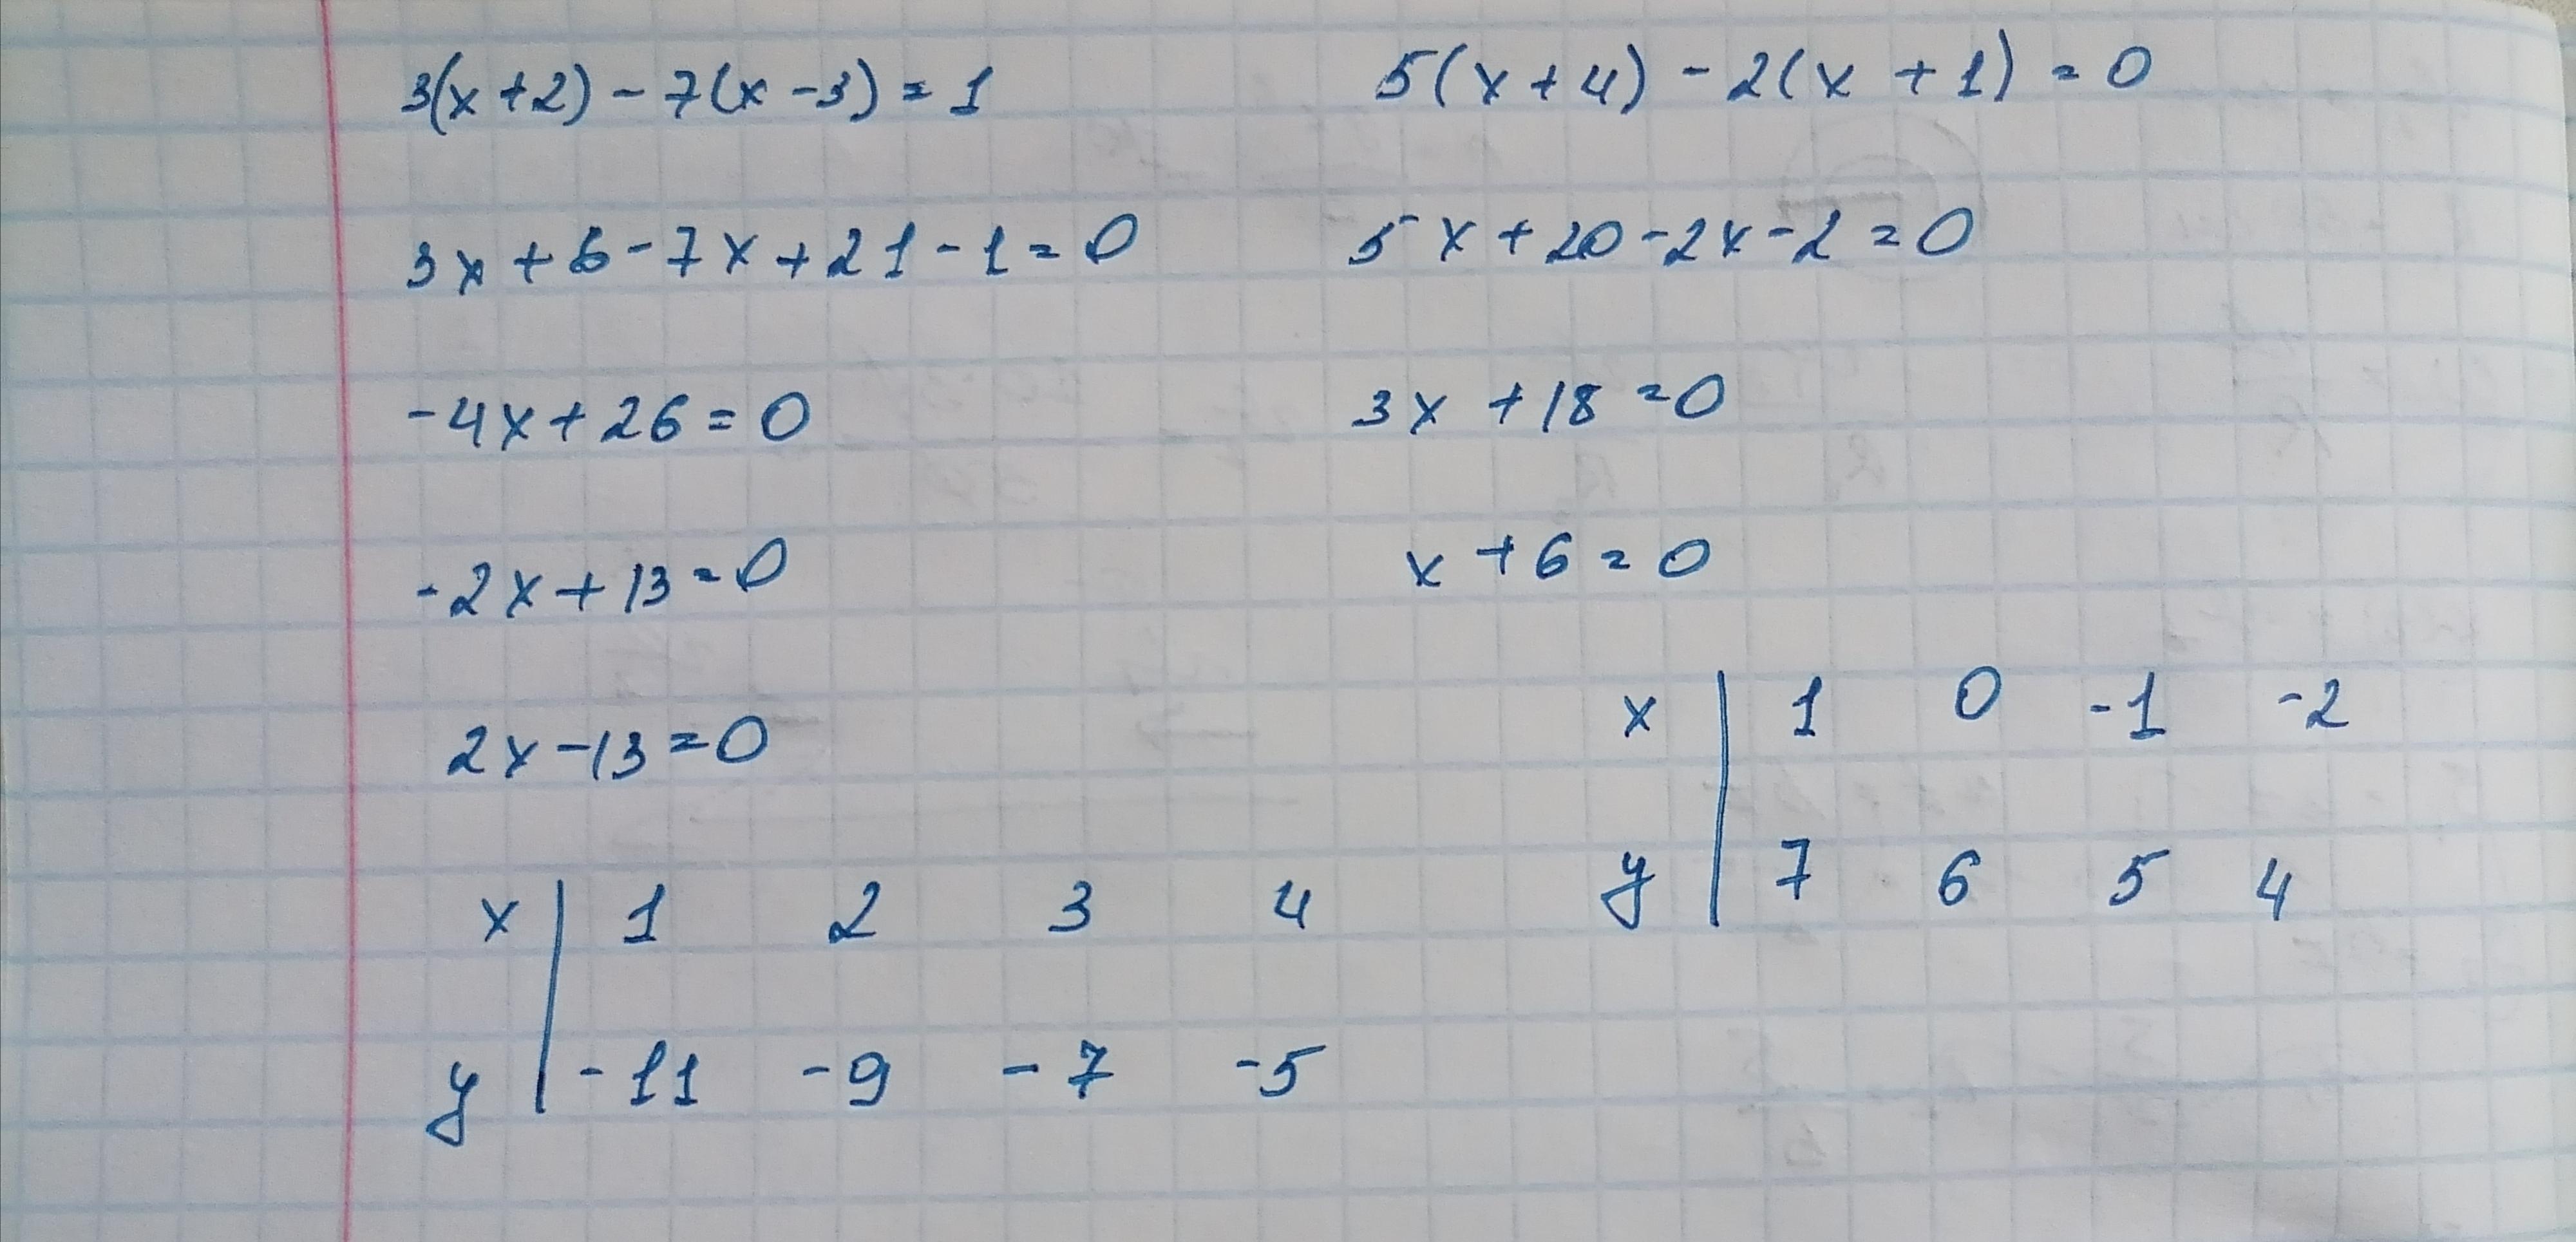 3(x+2)-7(x-3)=1
3x+6-7x+21-1=0
-4x+26=0
-2x+13=0
2x-13=0
x | 1 2 3 4
y | -11 -9 -7 -5
5(x+4)-2(x+1)=0
5x+20-2x-2=0
3x+18=0
x+6=0
x | 1 0 -1 -2
y | 7 6 5 4